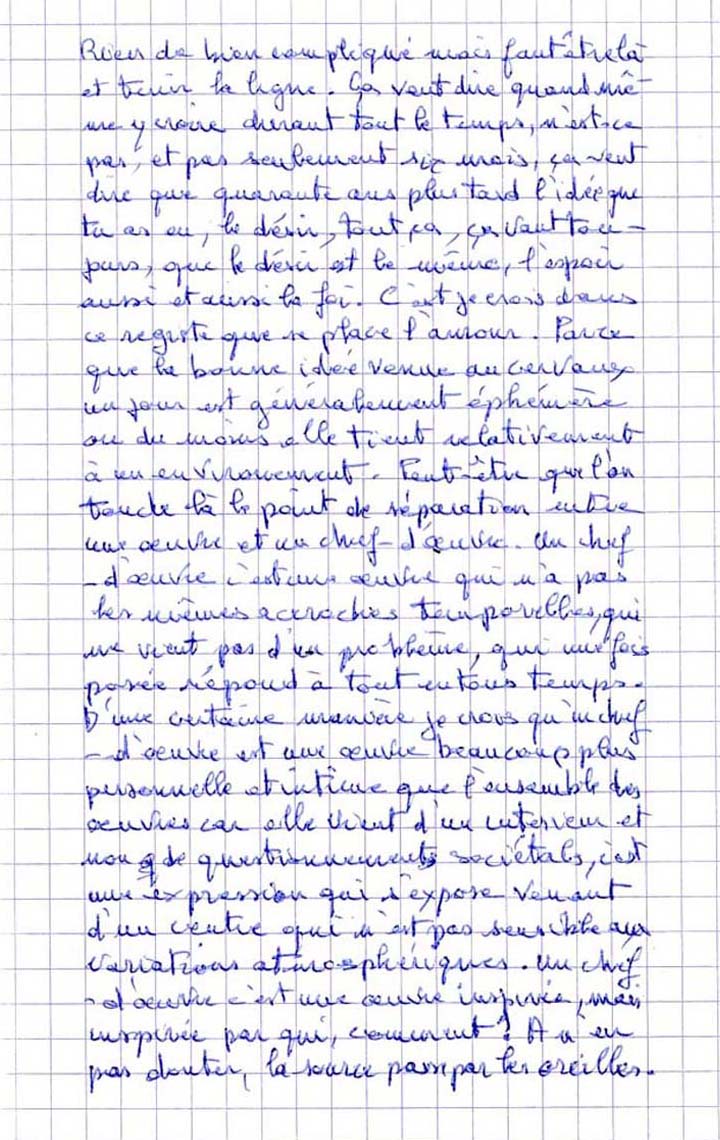 Rien de bien compliqué mais faut être là
et tenir la ligne. Ça veut dire quand mê-
me y croire durant tout le temps, n'est-ce
pas, et pas seulement six mois, ça veut
dire que quarante ans plus tard l'idée que
tu as eu, le désir, tout ça, ça vaut tou-
jours, que le désir est le même, l'espoir
aussi et aussi la foi. C'est je crois dans
ce registe que se place l'amour. Parce
que la bonne idée venue au cerveaux
un jour est généralement éphémère
ou du moins elle tient relativement
à un environnement. Peut-être que l'on
touche là le point de séparation entre
une œuvre et un chef-d'œuvre. Un chef
-d'œuvre c'est une œuvre qui n'a pas
les mêmes accroches temporelles, qui
ne vient pas d'un problème, qui une fois
posée répond à tout en tous temps.
D'une certaine manière je crois qu'un chef
-d'œuvre est une œuvre beaucoup plus
personnelle et intime que l'ensemble des
œuvres car elle vient d'un intérieur et
non de questionnements sociétals, c'est
une expression qui s'expose venant
d'un centre qui n'est pas sensible aux
variations atmosphériques. Un chef
-d'œuvre c'est une œuvre inspirée, mais
inspirée par qui, comment? A n'en
pas douter, la source passe par les oreilles.